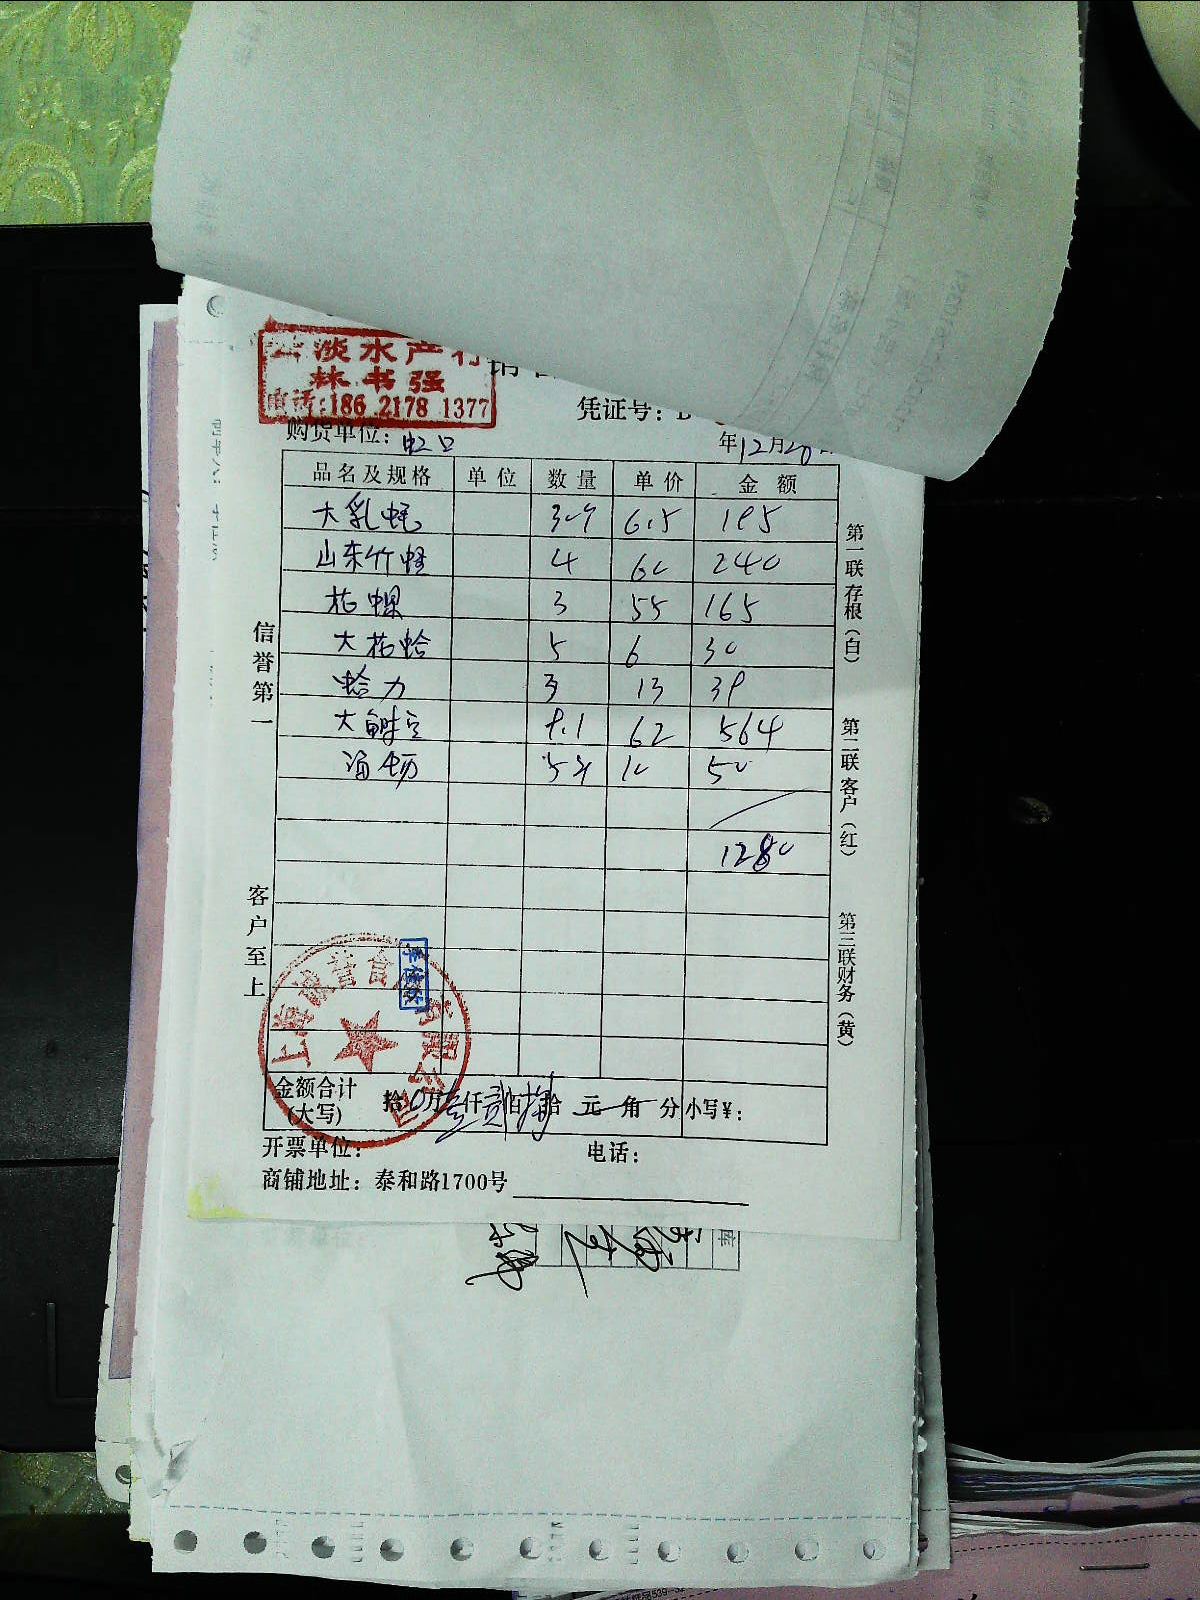 淡水产行
林书强
电话:186 2178 1377
凭证号:
购货单位: 虹口
年12月20
品名及规格 单位 数量 单价 金额
大乳蚝 30个 6.5 195
山东竹蛏 4 60 240
花螺 3 55 165
大花蛤 5 6 30
蛤力 3 13 39
大鲜豆 9.1 62 564
海蛎 5斤 10 50
1280
信誉第一
客户至上
第一联存根(白)
第二联客户(红)
第三联财务(黄)
上海诚誉食 有限公司
金额合计(大写) 拾 0万 壹仟 贰佰 捌拾 元 角 分 小写¥:
开票单位: 电话:
商铺地址: 泰和路1700号
库